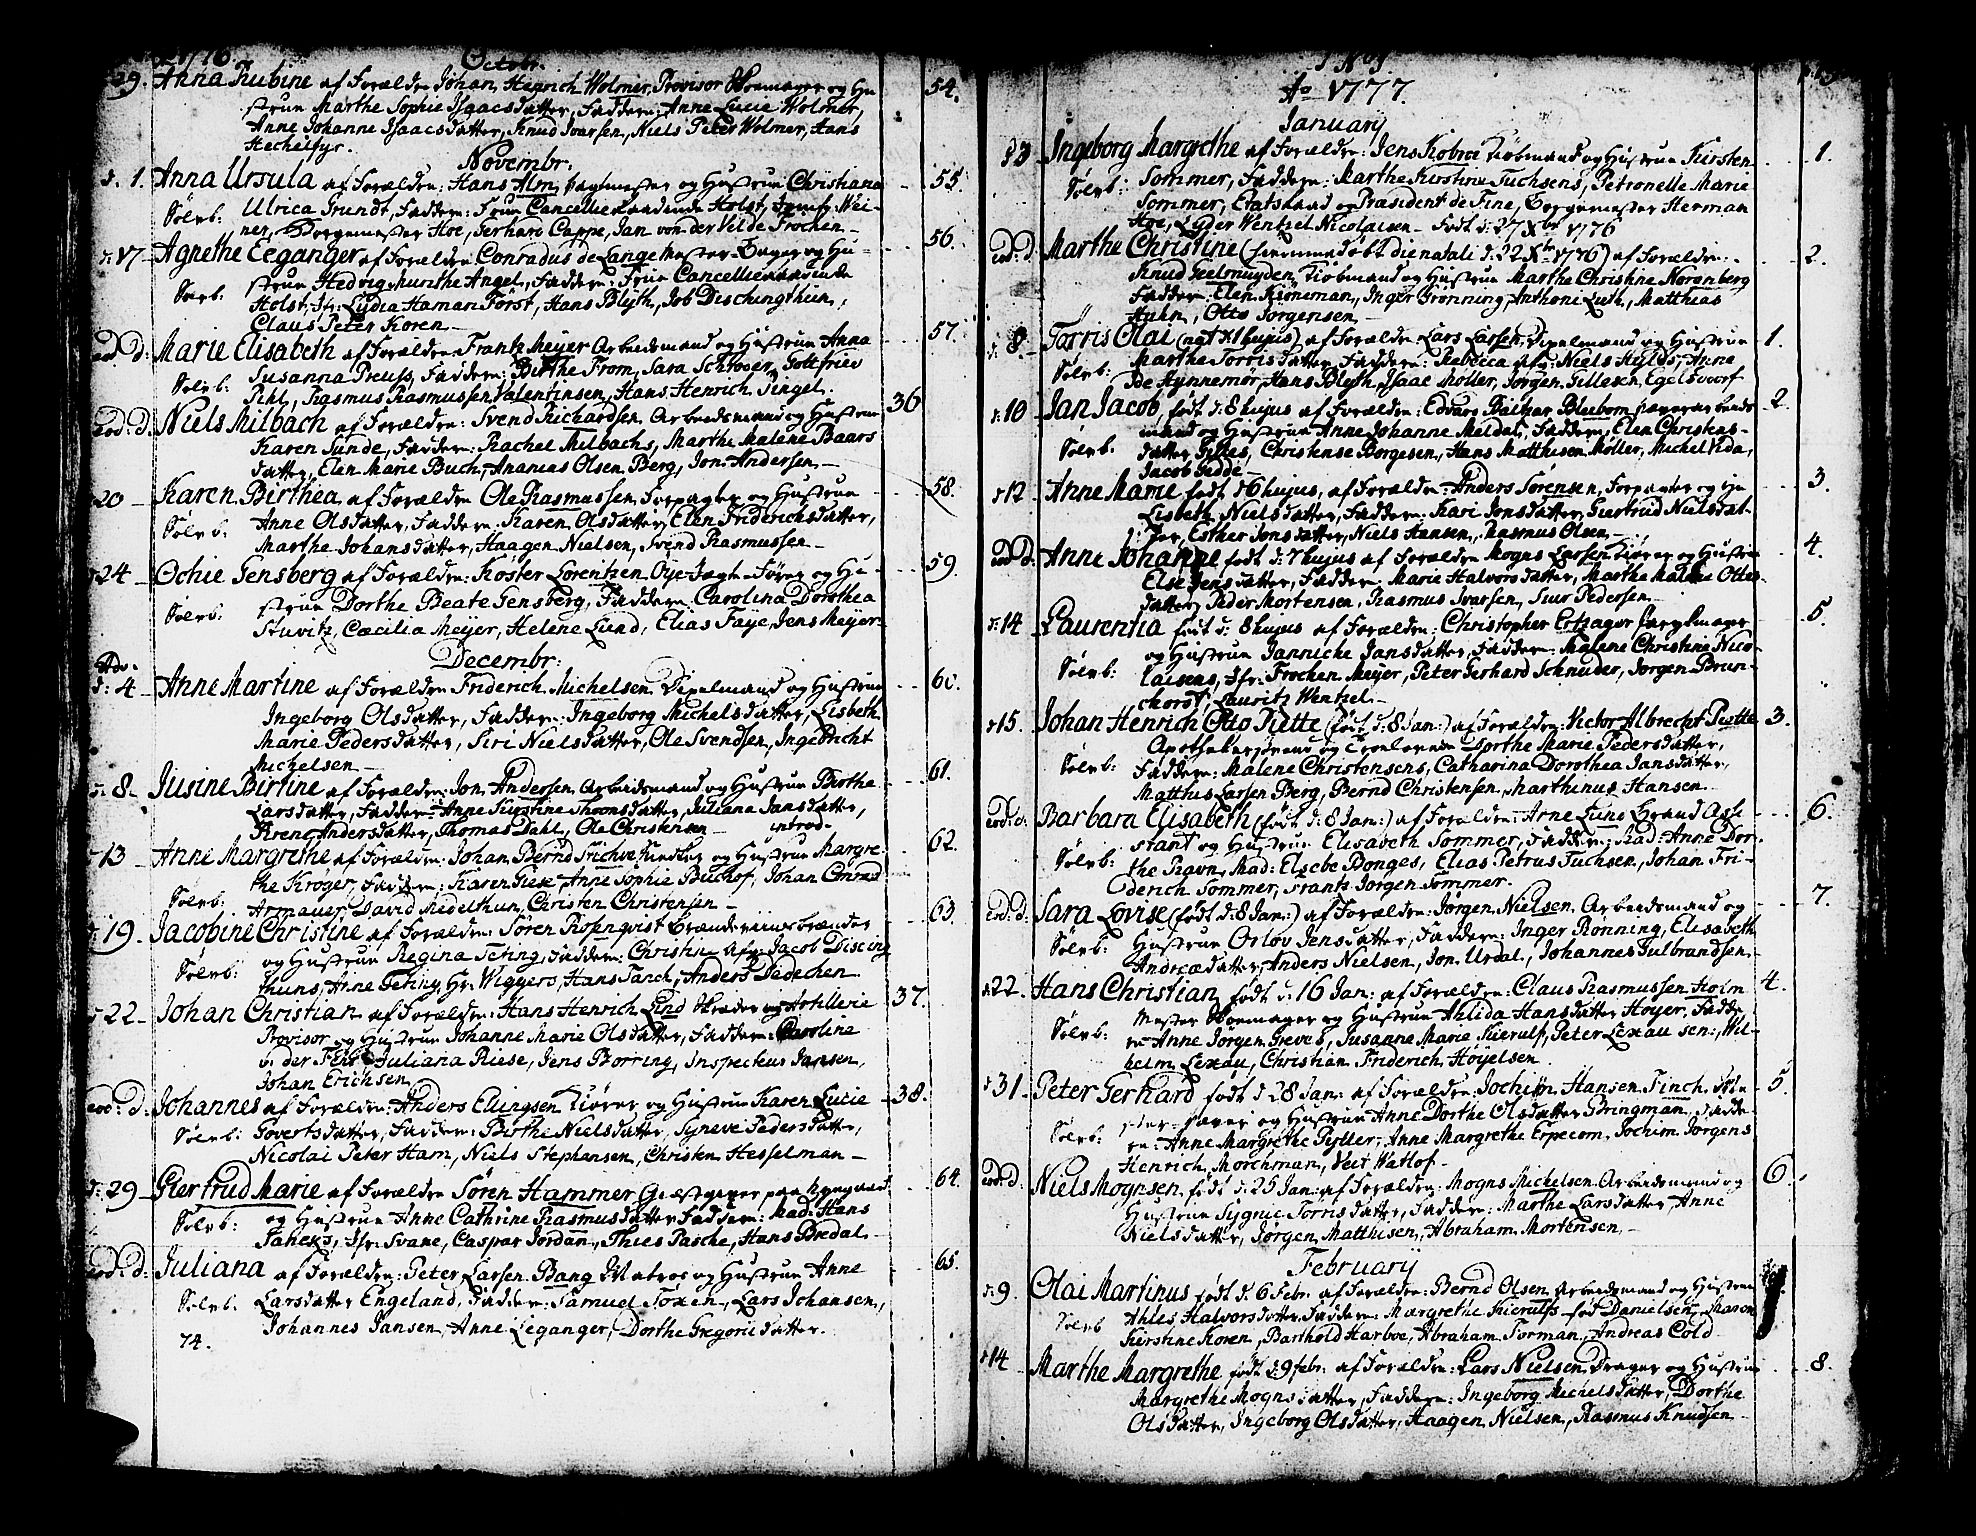 1776. Octobr.
29. Anna Rubine af Forældre Johan Henrich Wolmer, Provisor Skoemager og Hu- 54.
strue Marthe Sophie Isaacsdatter, Faddere: Anne Lucie Wolmer,
Anne Johanne Isaacsdatter, Knud Ivarsen, Niels Peter Wolmer, Hans
Hechelfyr.
Novembr.
d. 1. Anna Ursula af Forældre: Hans Alm, Vagtmester og Hustrue Christiana 55.
Sølvb: Ulrica Grundt, Faddere: Frue Cancellieraadinde Holst, Jomfr. Wei-
ner, Borgemester Hoe, Gerhard Cappe, Jan von der Velde Frochen.
d. 17 Agnethe Eeganger af Forældre Conradus de Lange Mester-Bager og Hu- 56.
Særb: strue Hedvig Munthe Angel, Faddere: Frue Cancellieraadinde
Holst, Jfr: Lydia Haman Forst, Hans Blyth, Job Dischingthun,
Claus Peter Koren.
eod. d: Marie Elisabeth af Forældre Frantz Meyer Arbeidsmand og Hustrue Anna 57.
Sølvb: Susanna Preuss, Faddere: Birthe From, Sara Schrøder, Gottfried
Pihl, Rasmus Rasmussen Valentinsen, Hans Henrich Pingel.
eod: d. Niels Milbach af Forældre: Svend Richardsen Arbeidsmand og Hustrue 36
Karen Sunde, Faddere: Rachel Milbachs, Marthe Malene Baars
datter, Elen Marie Buch, Ananias Olsen Berg, Jon Andersen.
20 Karen Birthea af Forældre Ole Rasmussen Forpagter og Hustrue 58.
Sølvb: Anne Olsdatter, Faddere: Karen Olsdatter, Elen Friderichsdatter,
Marthe Johansdatter, Haagen Nielsen, Svend Rasmussen
24 Ochie Gensberg af Forældre: Køster Lorentzen Øye-Jagte-Fører og Hu- 59.
Sølvb: strue Dorthe Beate Gensberg, Faddere: Carolina Dorothea
Stuvitz, Cæcilia Meyer, Helene Lund, Elias Faye, Jens Meyer
Decembr:
Adv.
d: 4 Anne Martine af Forældre Friderich Michelsen Pipelmand og Hustrue 60.
Ingeborg Olsdatter, Faddere: Ingeborg Michelsdatter, Lisbeth
Marie Pedersdatter, Siri Nielsdatter, Ole Svendsen, Ingebricht
Michelsen
d: 8 Jusine Birtine af Forældre: Jon Andersen Arbeidsmand og Hustrue Birthe 61.
Larsdatter, Faddere: Anne Kirstine Thomsdatter, Juliana Jansdatter,
Sirene Andersdatter, Thomas Dahl, Ole Christensen introd.
13 Anne Margrethe af Forældre: Johan Bernd Strichve Kudsker og Hustrue Margre- 62.
Sølvb: the Krøger, Faddere: Karen Giese, Anne Sophie Buchof, Johan Conrad
Armauer, David Medelthun, Christen Christensen
d. 19 Jacobine Christine af Forældre: Søren Rosenqvist Brænderviinsbrænder 63.
Sølvb: og Hustrue Regina Teting, Faddere: Christine afg: Jacob Discing
thuns, Anne Teting, Hr. Wiggers, Hans Tanch, Anders Dedechen
22 Johan Christian af Forældre: Hans Henrich Lind Skræder og Artillerie 37.
Provisor og Hustrue Johanne Marie Olsdatter, Faddere: Caroline
v. der Fehr, Juliana Riese, Jens Borring, Inspecteur Jansen,
Johan Erichsen
eod. d. Johannes af Forældre: Anders Ellingsen Kiører og Hustrue Karen Lucie 38.
Sølvb: Govertsdatter, Faddere: Birthe Nielsdatter, Syneve Pedersdatter,
Nicolai Peter Ham, Niels Stephansen, Christen Hesselman
d: 29 Giertrud Marie af Forældre Søren Hammer Giestgever paa Kongsgaard 64.
Sølvb: og Hustrue Anne Cathrine Rasmusdatter, Faddere: Mad: Hans
Sahers, Jfr: Svane, Caspar Jordan, Thies Pasche, Hans Bredal
eod. d: Juliana af Forældre: Peter Larsen Bang Matros og Hustrue Anne 65.
Sølvb. Larsdatter Engeland, Faddere: Samuel Foxen, Lars Johansen,
Johannes Jansen, Anne Leganger, Dorthe Gregoriidatter.
74.
Ao 1777.
January
d 3 Ingeborg Margrethe af Forældre: Jens Kobroe Kiøbmand og Hustrue Kirsten 1.
Sølvb: Sommer, Faddere: Marthe Kirstine Fuchsens, Petronelle Marie
Sommer, Etatsraad og Præsident de Fine, Borgemester Herman
Hoe, Lyder Wentzel Nicolaisen. Født d: 27 Xbr 1776
eod: d. Marthe Christine (hiemmedøbt die natali d: 22 Xbr 1776) af Forældre: 2.
Knud Geelmuyden Kiøbmand og Hustrue Marthe Christine Norenberg
Faddere: Elen Krøneman, Inger Grønning, Anthoni Luth, Matthias
Huhn, Otto Jørgensen
d. 8 Torris Olai (nat. d. 1 hujus) af Forældre Lars Larsen, Pipelmand og Hustrue 1.
Sølvb: Marthe Torrisdatter, Faddere: Rebecca afg: Niels Hylds, Anne
de Hynnemør, Hans Blyth, Isaac Møller, Jørgen Gillesen Egelsdorf
d: 10 Jan Jacob, født d: 8 hujus af Forældre: Edvard Baltzar Bleibom Haverarbeids 2.
Sølvb. mand og Hustrue Anne Johanne Meldal, Faddere, Elen Christens-
datter Gilkes, Christense Borgesen, Hans Matthisen Møller, Michel Vida,
Jacob Gedde
d 12 Anne Marie født d 6 hujus, af Forældre: Anders Sørensen, Forpagter og Hu 3.
Lisbeth Nielsdatter, Faddere: Kari Jonsdatter, Giertrud Nielsdat-
ter, Esther Jonsdatter, Niels Hansen, Rasmus Olsen
eod D: Anne Johanne født d: 7 hujus af Forældre Mogns Larsen Kiører og Hustrue 4.
Else Jensdatter, Faddere: Marie Halvorsdatter, Marthe Malene Ottes-
datter, Peder Mortensen, Rasmus Ivarsen, Siur Pedersen
d: 14 Laurentia født d: 8 hujus af Forældre: Christopher Ertzager Seylmager 5.
Sølvb: og Hustrue Jannicke Jansdatter, Faddere: Malene Christine Nico-
laisens, Jfr: Frochen Meyer, Peter Gerhard Schnuder, Jørgen Brun-
chorst, Lauritz Wentzel
d 15. Johan Henrich Otto Piette (født d: 8 Jan:) af Forældre: Victor Albrecht Piette 3.
Sølvb: Apothekersvend og Trolovede Dorthe Marie Pedersdatter,
Faddere: Malene Christensens, Catharina Dorothea Jansdatter,
Matthis Larsen Berg, Bernd Christensen, Marthinus Hansen
eod: d: Barbara Elisabeth (født d: 8 Jan:) af Forældre: Arne Lund Brand Asse 6.
Sølvb: stant og Hustrue Elisabeth Sommer, Faddere: Mad: Anne Dor-
the Ravn, Mad: Elsebe Bonges, Elias Petrus Tuchsen, Johan Fri-
derich Sommer, Frantz Jørgen Sommer.
eod. d: Sara Lovise (født d: 8 Jan:) af Forældre: Jørgen Nielsen Arbeidsmand og 7.
Sølvb: Hustrue Orlov Jensdatter, Faddere: Inger Rønning, Elisabeth
Andreædatter, Anders Nielsen, Jon Urdal, Johannes Gulbrandsen
d: 22 Hans Christian født d: 16 Jan: af Forældre: Claus Rasmussen Holm 4.
Sølvb: Mester Skoemager og Hustrue Ahlida Hansdatter Høyer, Fadde
re: Anne Jørgen Greves, Susanne Marie Kierulf, Peter Lexau sen:, Wil-
helm Lexau, Christian Friderich Høyelsen
d 31 Peter Gerhard født d 28 Jan: af Forældre Jochim Hansen Finch 5.
Sølvb: og Hustrue Anne Dorthe Olsdatter Bringman, Fadde-
re: Anne Margrethe Pyller, Anne Margrethe Erpecom, Jochim Jørgens
Henrich Morchman, Veit Watlof
eod. d. Niels Mognsen født d: 25 Jan: af Forældre: Mogns Michelsen Arbeidsmand og 6
Hustrue Sygnie Torrisdatter, Faddere: Marthe Larsdatter, Anne
Nielsdatter, Jørgen Matthisen, Abraham Mortensen,
February
d: 9. Olai Martinus født d. 6 Febr. af Forældre: Bernd Olsen Arbeidsmand og Hustrue
Sølvb Ahles Halvorsdatter, Faddere: Margrethe Kierulfs fød Danielsen, Maren
Kirstine Koren, Barthold Harboe, Abraham Forman, Andreas Cold
d 14 Marthe Margrethe født d: 9 febr: af Forældre: Lars Nielsen Drager og Hustrue 8.
Margrethe Mognsdatter, Faddere: Ingeborg Michelsdatter, Dorthe
Olsdatter, Ingeborg Olsdatter, Haagen Nielsen, Rasmus Knudsen